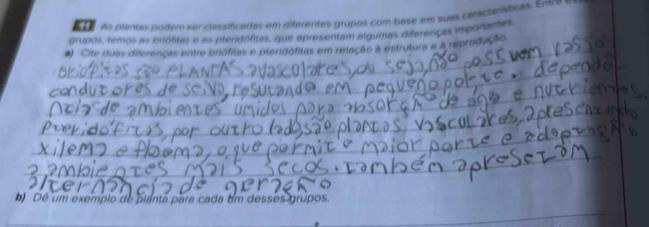 11 As plantas podem ser classificadas em diferentes grupos com base em suas características. Entre
grupos, temos as briófitas e as pteridófitas, que apresentam algumas diferenças importantes.
a) Cite duas diferenças entre briófitas e pteridófitas em relação à estrutura e à reprodução.
briófitas são PLANTAS avasculares, ou seja, não possuem vasos
condutores de seiva, resutando em pequeno porte. dependê
ncia de ambientes umidos para absorção de agua e nutrientes.
Pteridófitas, por outro lado, são plantas vasculares, apresentando
xilema e floema, o que permite maior porte e adaptação
a ambientes mais secos. também apresetam
alternância de geração
b) Dê um exemplo de planta para cada um desses grupos.